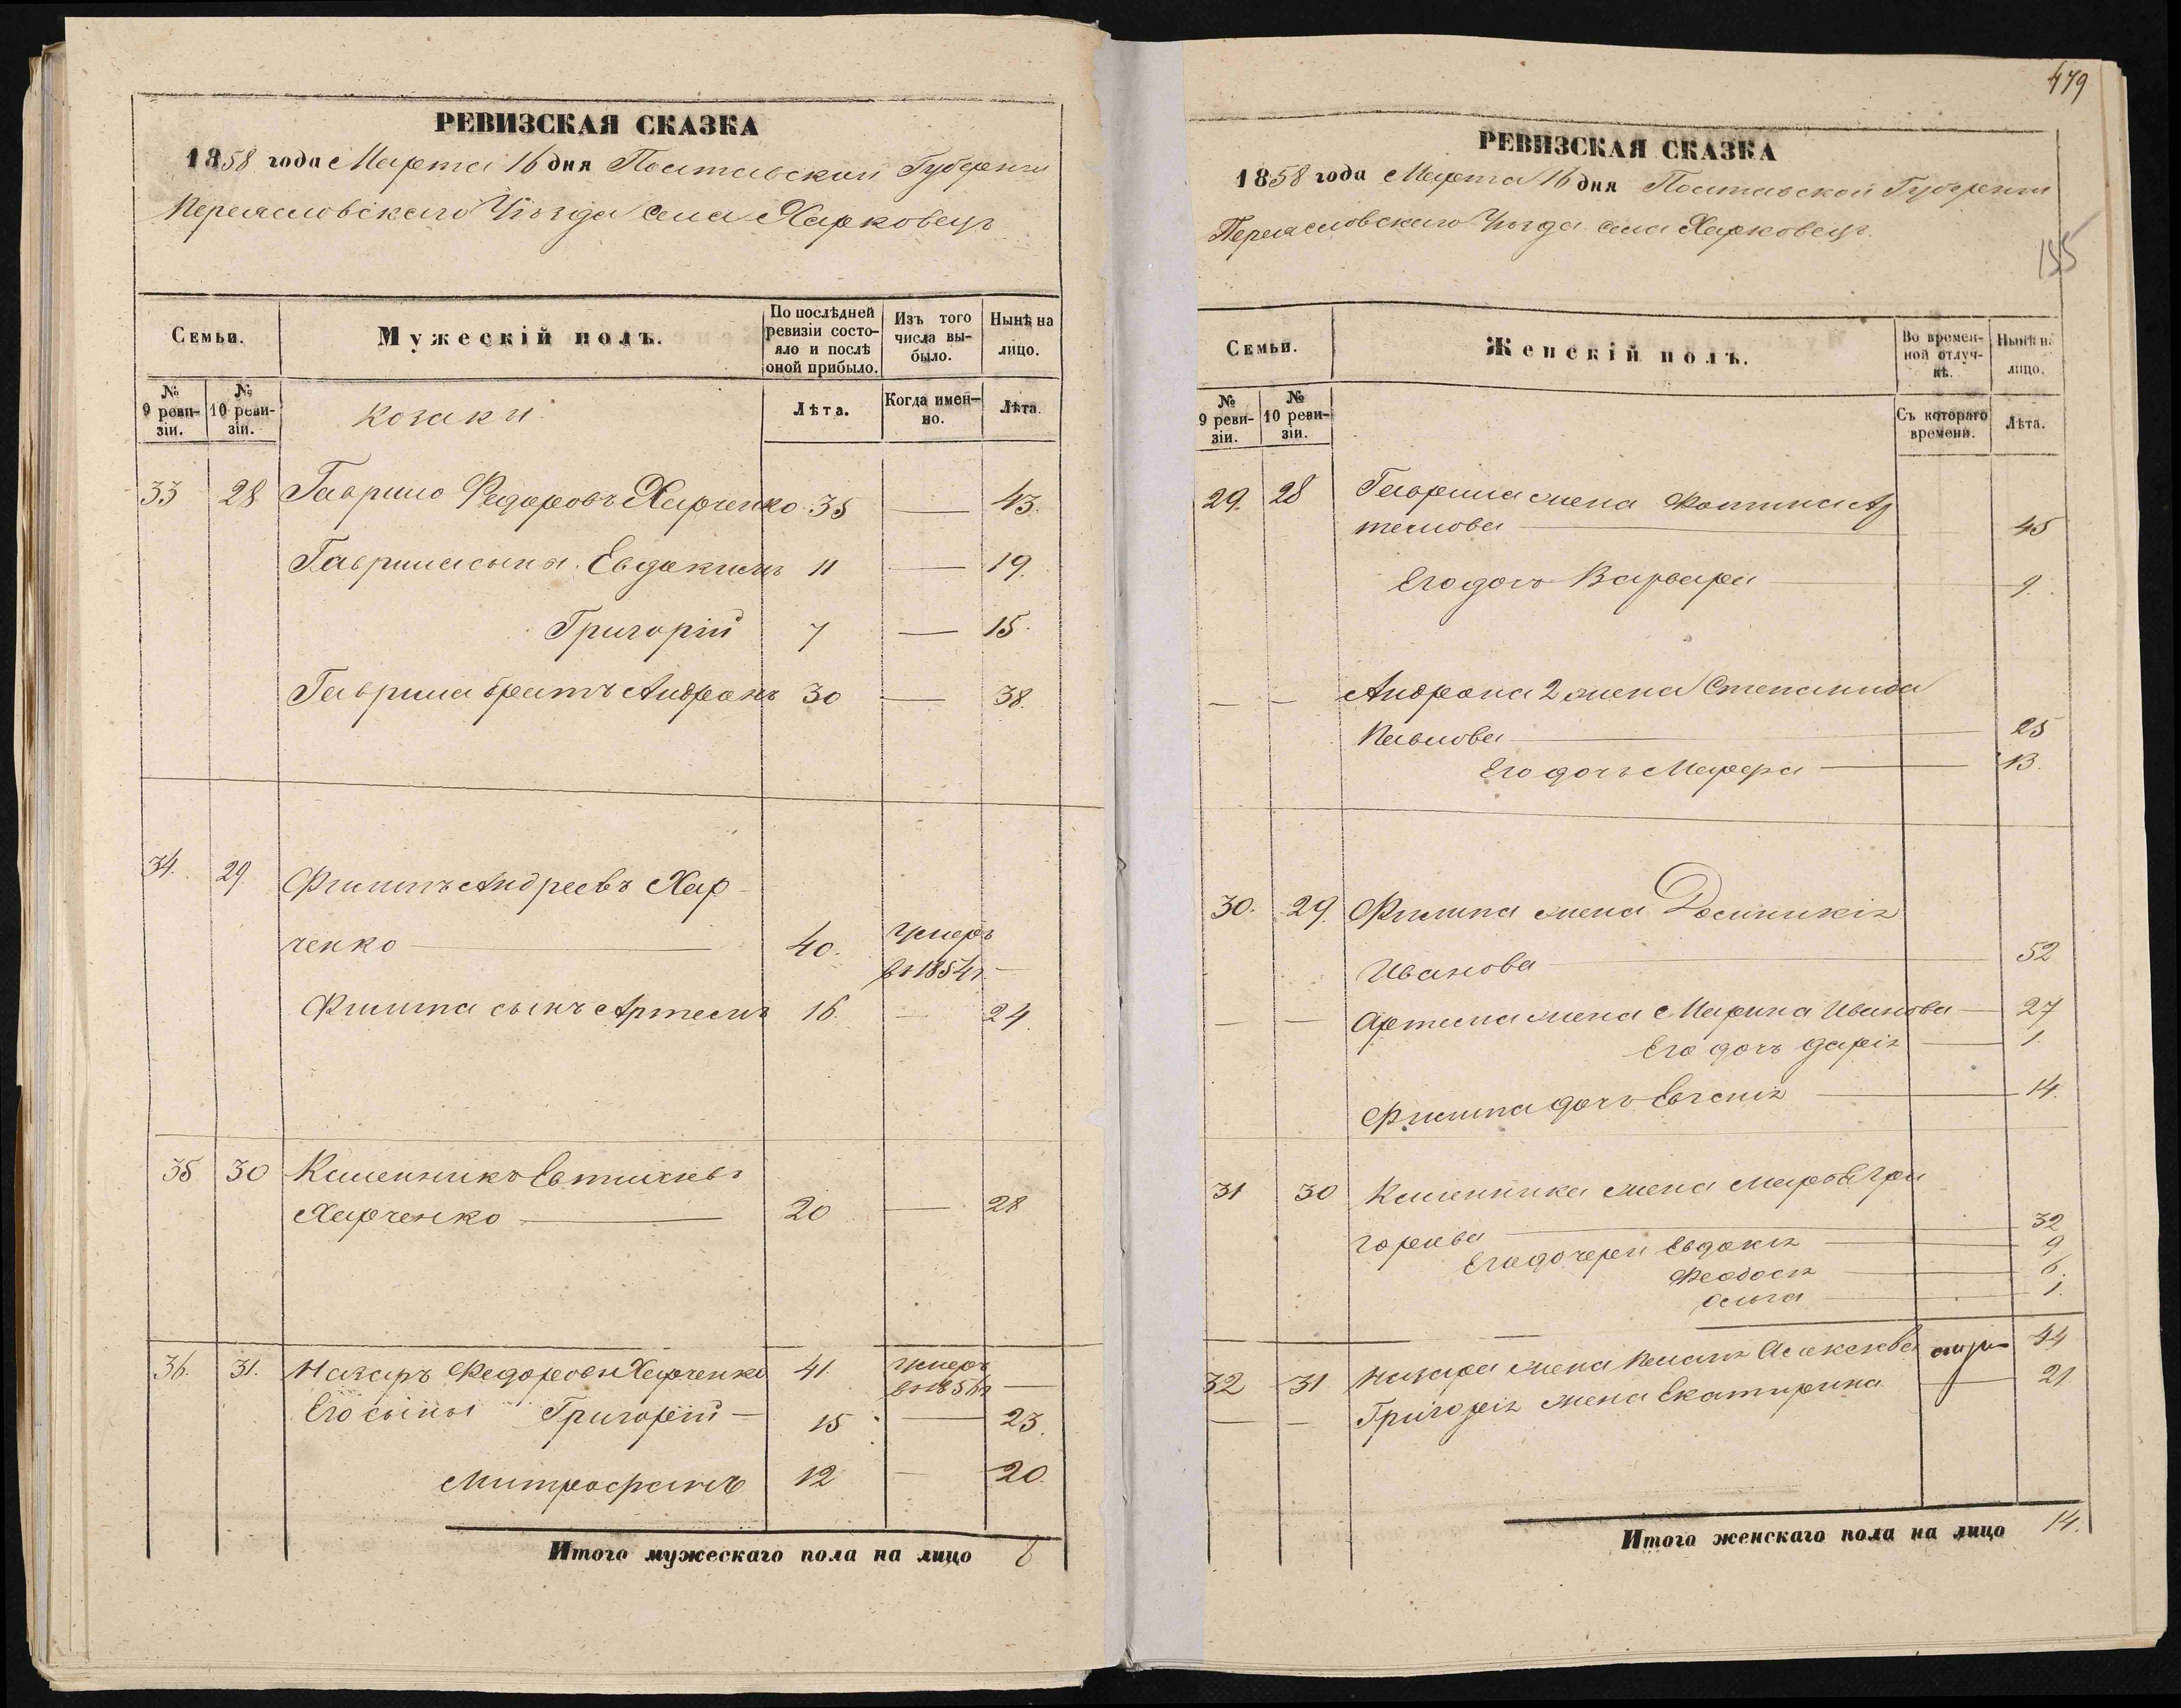 РЕВИЗСКАЯ СКАЗКА
1858 года Марта 16 дня Полтавской Губернии
Переяславскаго Уѣзда села Харковецъ
Семьи.
Мужескій полъ.
По послѣдней ревизіи состояло и послѣ оной прибыло.
Изъ того числа выбыло.
Нынѣ на лицо.
№ 9 ревизіи.
№ 10 ревизіи.
Козаки
Лѣта.
Когда именно.
Лѣта.
33 28 Гаврило Федоровъ Харченко 35 — 43.
Гаврила сыны Евдокимъ 11 — 19.
Григорій 7 — 15.
Гаврила братъ Андронъ 30 — 38.
34. 29. Филипъ Андреевъ Хар-
ченко — 40. умеръ
въ 1854 г. —
Филипа сынъ Артемъ 16. — 24.
35 30 Каленникъ Евтихіевъ
Харченко — 20 — 28
36. 31. Назаръ Федоровъ Харченко 41. умеръ
въ 1856 г. —
Его сыны Григорій — 15 — 23.
Митрофанъ 12 — 20.
Итого мужескаго пола на лицо
479
РЕВИЗСКАЯ СКАЗКА
1858 года Марта 16 дня Полтавской Губернии
Переяславскаго Уѣзда села Харковецъ.
155
Семьи.
Женскій полъ.
Во временной отлучкѣ.
Нынѣ на лицо.
№ 9 ревизіи.
№ 10 ревизіи.
Съ котораго времени.
Лѣта.
29. 28 Гаврила жена Фотина Ар
темова — 45
Его дочь Варвара — 9.
— — Андрона 2 жена Степанида
Павлова — 25
Его дочь Марфа — 13.
30. 29. Филипа жена Домникія
Иванова — 52
— — Артема жена Марина Иванова — 27
Его дочь Дарія — 1.
Филипа дочь Евгенія — 14.
31 30 Каленника жена Марфа Гри
горіева — 32
Его дочери Евдокія — 9
Феодосія — 6.
Ольга — 1.
32 31 Назара жена Пелагія Алексѣева 44
— — Григорія жена Екатирина — 21
Итого женскаго пола на лицо 14.